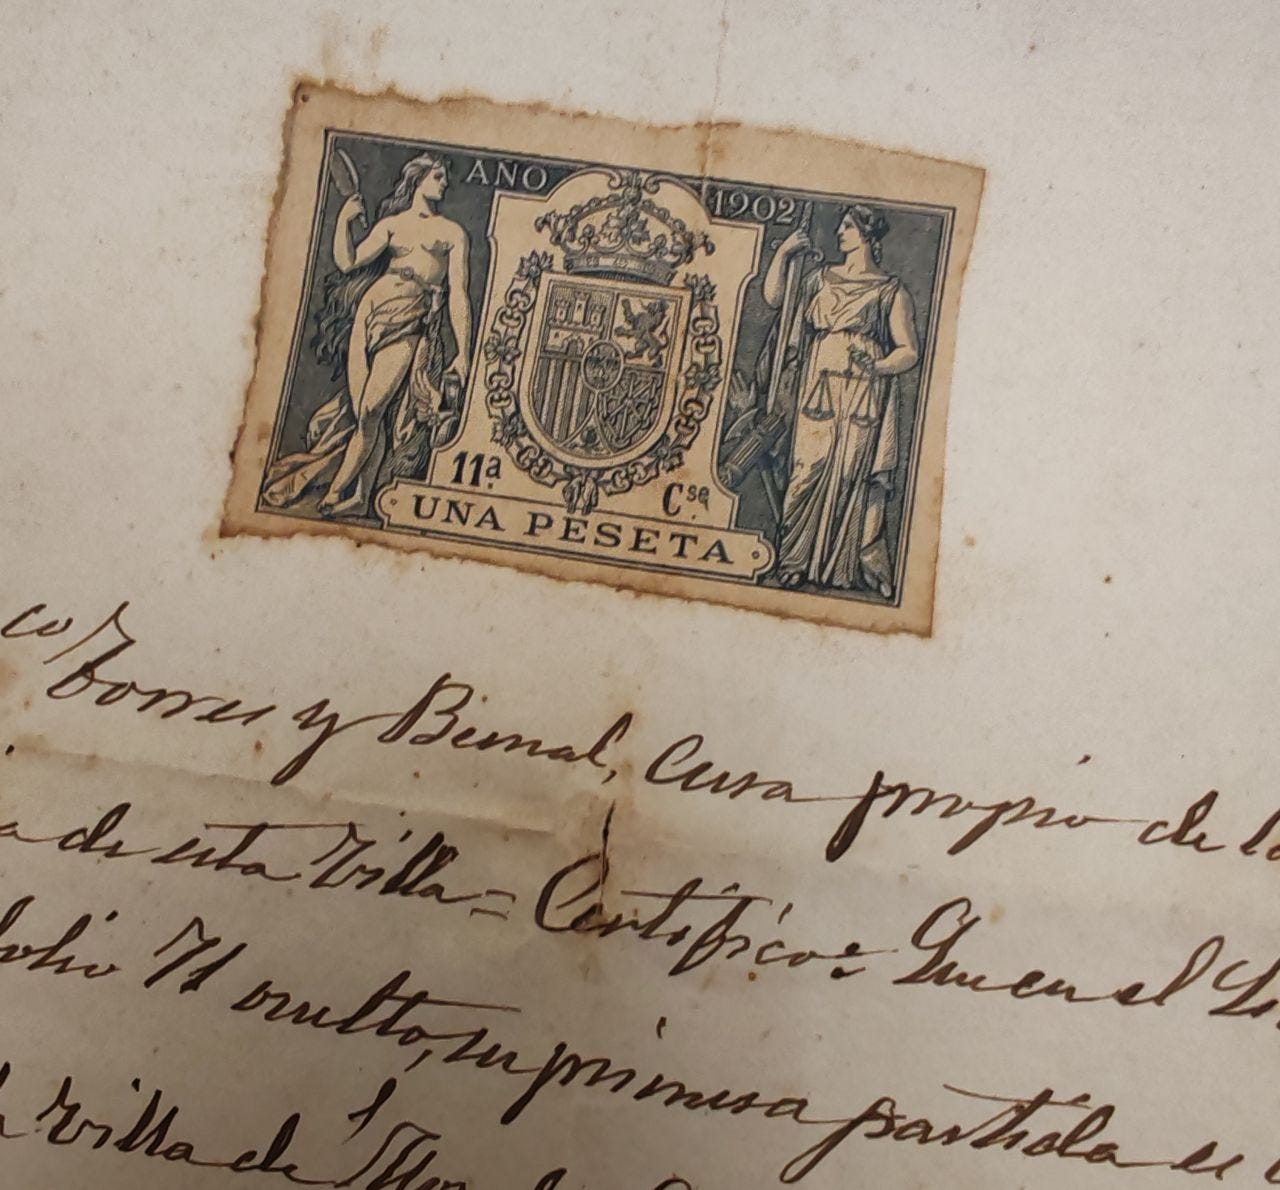 AÑO 1902
11ª Cse
UNA PESETA
co Torres y Bernal, Cura propio de la
a de esta Villa = Certifico: Que en el Li
folio 71 vuelto, su primera partida se
Villa de